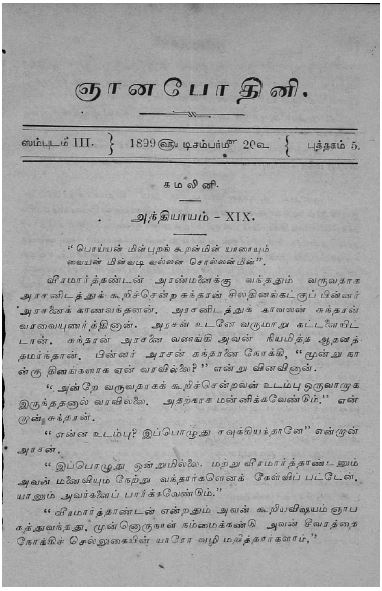 ஞானபோதினி.
ஸம்புடம் III. } 1899 ௵ டிசம்பர்மீ 20௳ { புத்தகம் 5.
கமலினி.
அத்தியாயம் - XIX.
"பொய்யன் மின்புறங் கூறன்மின் யாரையும்
வையன் மின்வடி வல்லன சொல்லன்மின்".
வீரமார்த்தண்டன் அரண்மனைக்கு வந்ததும் வருவதாக
அரசனிடத்துக் கூறிச்சென்ற சுந்தரன் சிலதினங்கட்குப் பின்னர்
அரசனைக் காணவந்தனன். அரசனிடத்துக் காவலன் சுந்தரன்
வரவையுணர்த்தினான். அரசன் உடனே வருமாறு கட்டளையிட்
டான். சுந்தரன் அரசனை வணங்கி அவன் நியமித்த ஆதனத்
தமர்ந்தான். பின்னர் அரசன் சுந்தரனை நோக்கி, "மூன்று நா
ன்கு தினங்களாக ஏன் வரவில்லை?" என்று வினவினான்.
"அன்றே வருவதாகக் கூறிச்சென்றவன் உடம்பு ஒருவாறாக
இருந்ததனால் வரவில்லை. அதற்காக மன்னிக்கவேண்டும்." என்
றான் சுந்தரன்.
"என்ன உடம்பு? இப்பொழுது சவுக்கியந்தானே" என்றான்
அரசன்.
"இப்பொழுது ஒன்றுமில்லை. மற்று வீரமார்த்தாண்டனும்
அவன் மனைவியும் நேற்று வந்தார்களெனக் கேள்விப் பட்டேன்.
யானும் அவர்களைப் பார்க்கவேண்டும்."
"வீரமார்த்தாண்டன் என்றதும் அவன் கூறியவிஷயம் ஞாப
கத்துவந்தது. முன்னொருநாள் நம்மைக்கண்டு அவன் நகரத்தை
நோக்கிச் செல்லுகையில் யாரோ வழி மறித்தார்களாம்."